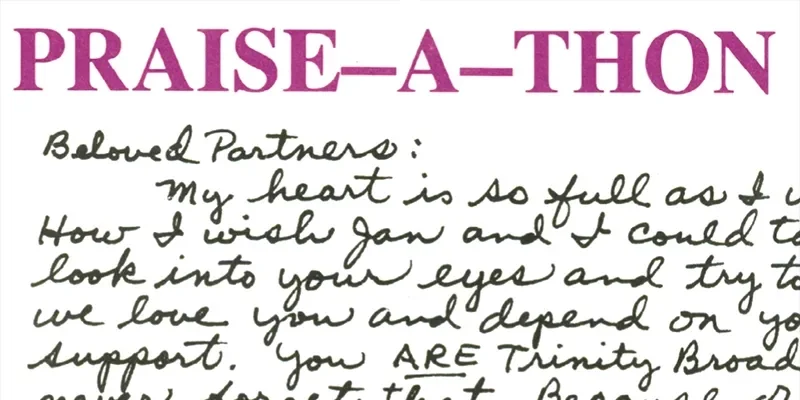 PRAISE—A—THON
Beloved Partners:
My heart is so full as I
How I wish Jan and I could
look into your eyes and try
we love you and depend on
support. You ARE Trinity
never forget that. Because